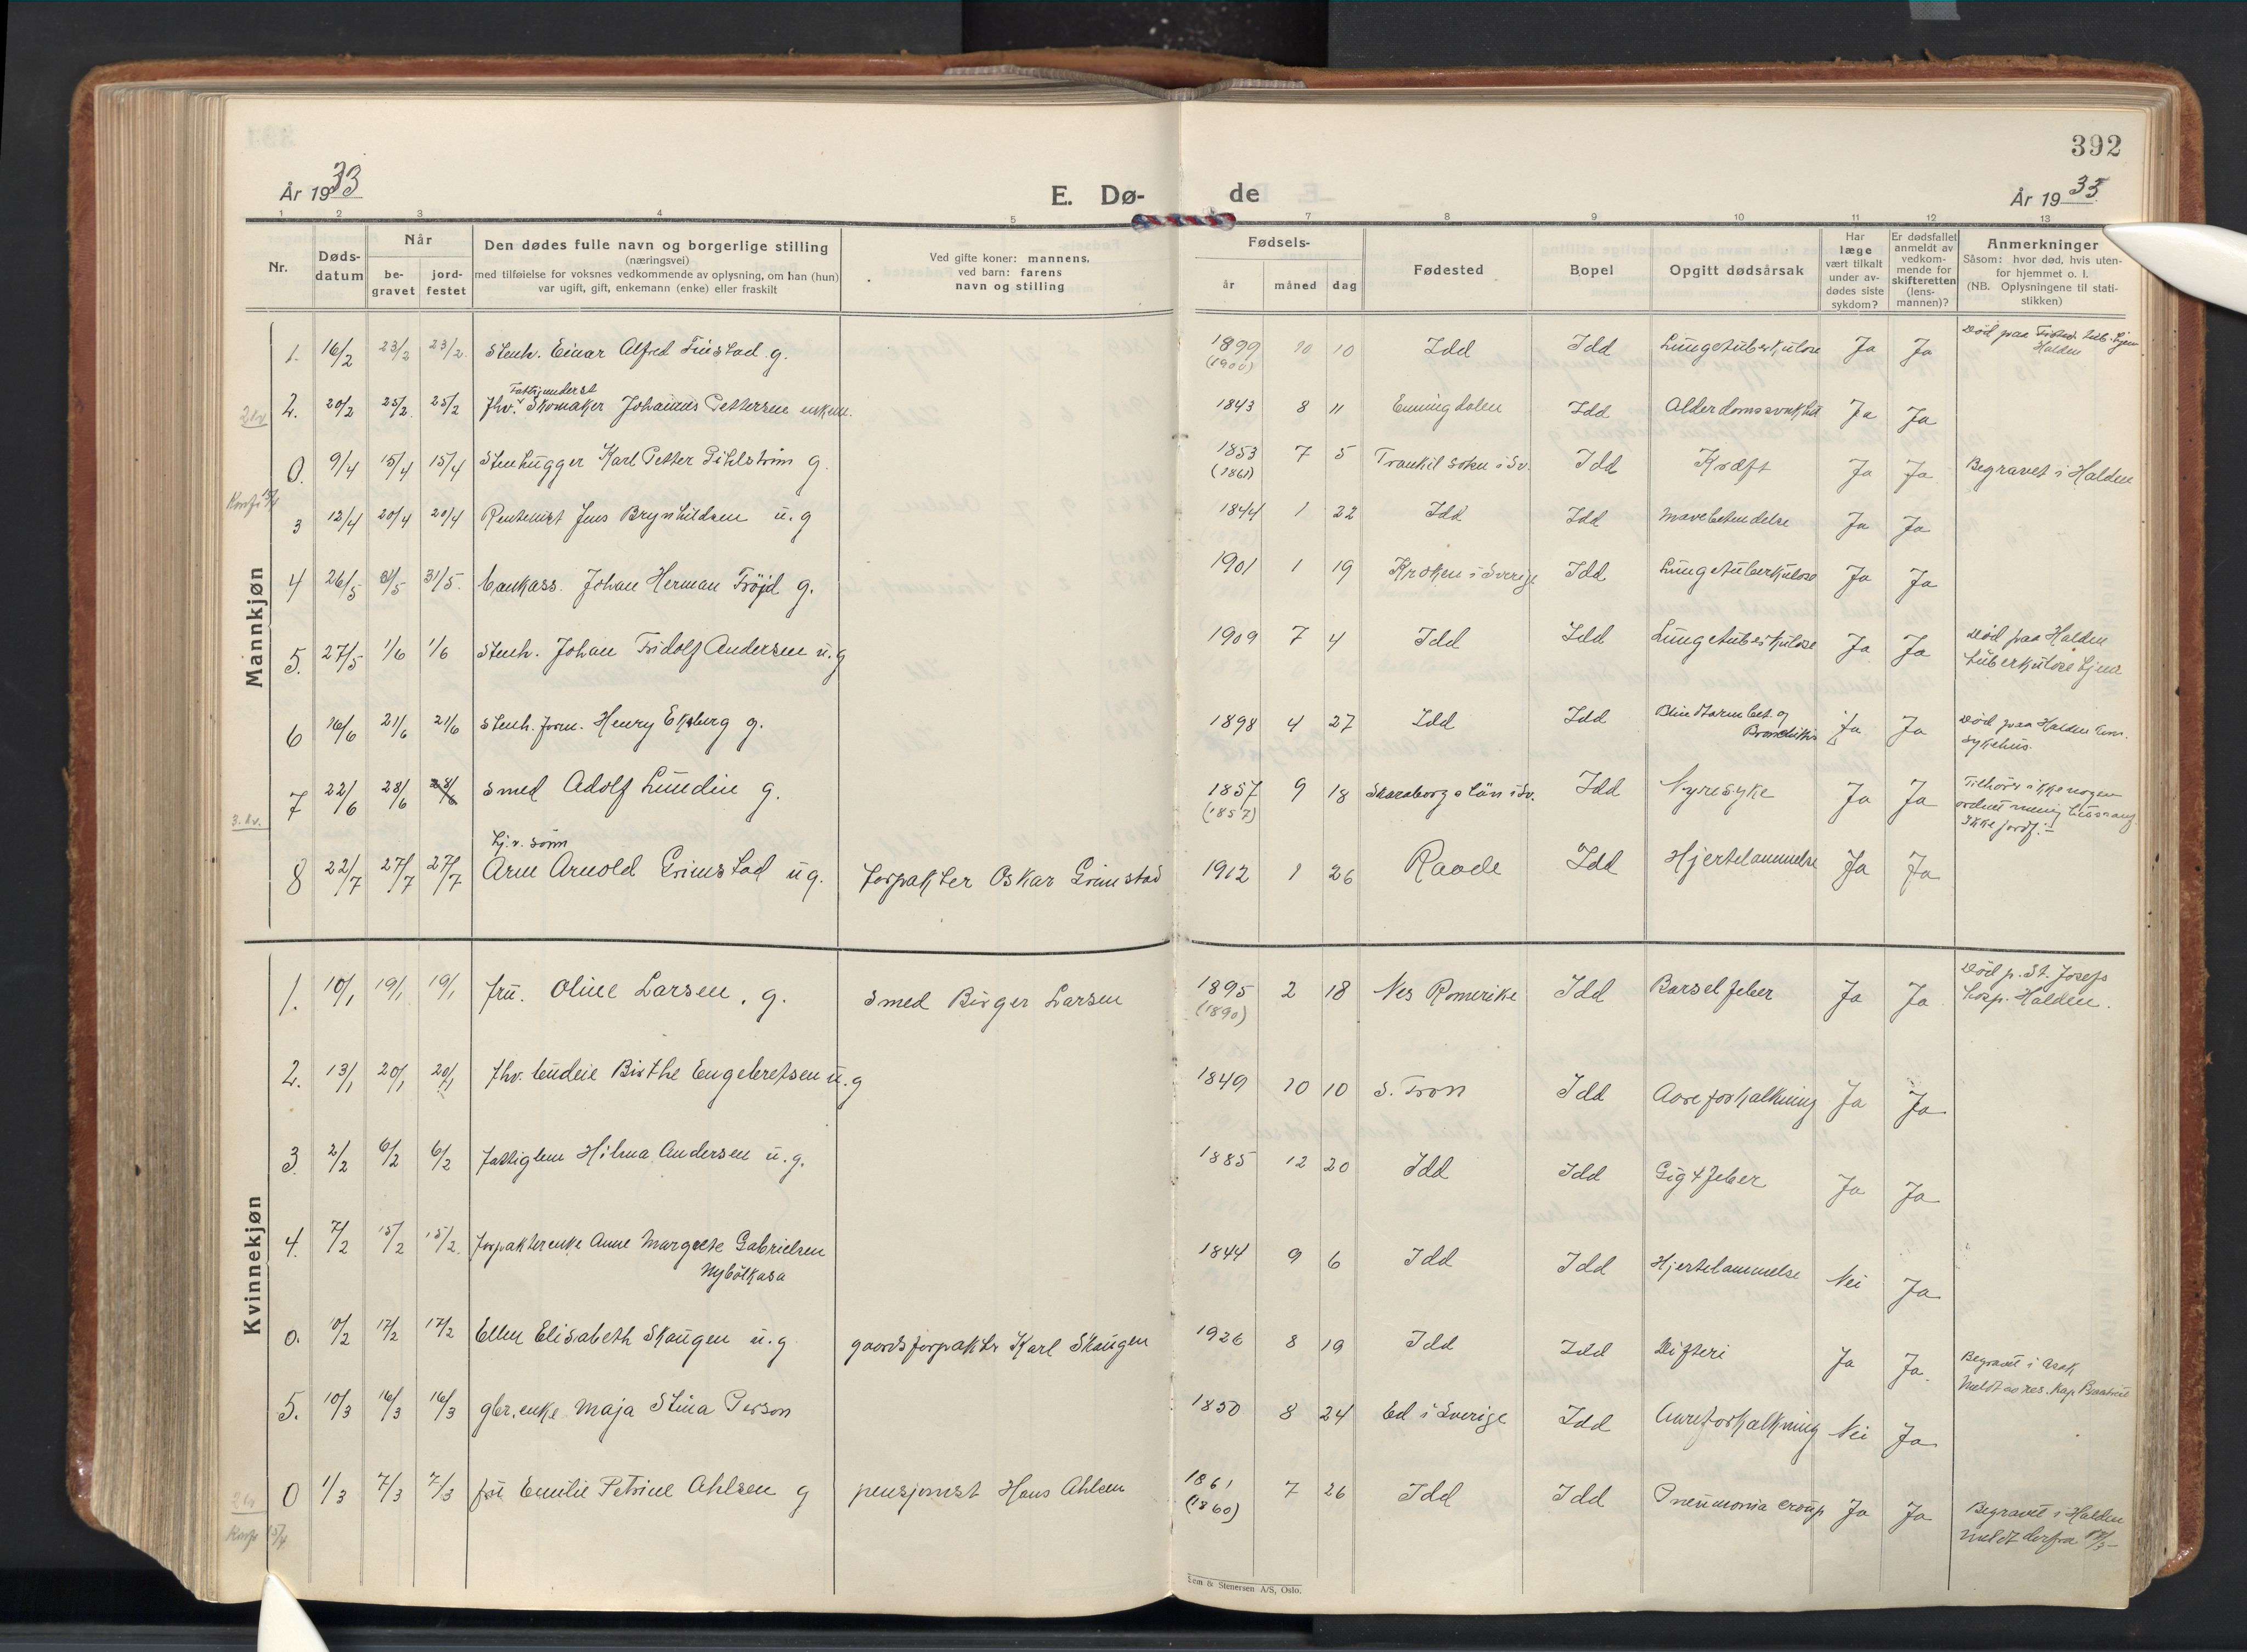 392
År 1933
E. Dø- de
År 1933.
1 2 3 4 5 7 8 9 10 11 12 13
Nr.
Døds-
datum
Når
be-
gravet
jord-
festet
Den dødes fulle navn og borgerlige stilling
(næringsvei)
med tilføielse for voksnes vedkommende av oplysning, om han (hun)
var ugift, gift, enkemann (enke) eller fraskilt
Ved gifte koner: mannens,
ved barn: farens
navn og stilling
Fødsels-
år måned dag
Fødested
Bopel
Opgitt dødsårsak
Har
læge
vært tilkalt
under av-
dødes siste
sykdom?
Er dødsfallet
anmeldt av
vedkom-
mende for
skifteretten
(lens-
mannen)?
Anmerkninger
Såsom: hvor død, hvis uten-
for hjemmet o. l.
(NB. Oplysningene til stati-
stikken)
Mannkjøn
1. 16/2 23/2 23/2. Stenh. Einar Alfred Finstad. g. 1899 10 10 Idd Idd Lungetuberkulose Ja Ja Død paa tub. hjem
(1900) Halden
Fattigunderst
2. 20/2 25/2. 25/2 fhv. Skomaker Johannes Pettersen enkem. 1843 8 11 Enningdalen Idd Alderdomssvakhet Ja Ja
0. 9/4 15/4 15/4 Stenhugger Karl Petter Pihlström g. 1853 7 5 Trankil soken i Sv. Idd Kræft Ja Ja Begravet i Halden
(1861)
3 12/4 20/4 20/4 Rentenist Jens Brynhildsen u. g 1844 1 22 Idd Idd Mavebetendelse Ja Ja
4 26/5 31/5 31/5. bankass. Johan Herman Fröjd g. 1901 1 19 Kroken i Sverige Idd Lungetuberkulose Ja Ja
5. 27/5 1/6 1/6 Stenh. Johan Fridolf Andersen u. g 1909 7 4 Idd Idd Lungetuberkulose Ja Ja Død paa Halden
tuberkulose hjem
6 16/6 21/6 21/6 Stenh. form. Henry Ekberg g. 1898 4 27 Idd Idd Blindtarmbet. og Ja Ja Død paa Halden kom.
Bronchitis sykehus.
7 22/6 28/6 28/6 Smed Adolf Lundin g. 1857 9 18 Skaraborgs län i Sv. Idd Nyresyke Ja Ja Tilhører ikke nogen
(1857) ordnet menig
Ikke jordf.
hj. v. sönn
8 22/7 27/7 27/7 Arne Arnold Grimstad u g. forpakter Oskar Grimstad 1912 1 26 Raade Idd Hjertelammelse Ja Ja
Kvinnekjøn
1. 10/1 19/1 19/1 fru. Oline Larsen. g. Smed Birger Larsen 1895 2 18 Nes Romerike Idd Barselfeber Ja Ja Død p. St. Josefs
(1890) hosp. Halden.
2. 13/1 20/1 20/1 fhv. budeie Birthe Engebretsen u. g 1849 10 10 S. Fron Idd Aareforkalkning Ja Ja
3. 2/2 6/2 6/2 fattiglem Hilma Andersen u. g. 1885 12 20 Idd Idd Gigtfeber Ja Ja
4. 7/2 15/2 15/2. forpakterenke Anne Margrete Gabrielsen 1844 9 6 Idd Idd Hjertelammelse Nei Ja
Nybölkasa
0. 10/2 17/2 17/2 Ellen Elisabeth Skaugen u. g gaardsforpakter Karl Skaugen 1926 8 19 Idd Idd Difteri Ja Ja. Begravet i Asak
Meldt av res. kap.
5. 10/3 16/3 16/3 gbr. enke Maja Stina Person 1850 8 24 Ed i Sverige Idd Aareforkalkning Nei Ja
0 1/3 7/3 7/3 fru Emilie Petrine Ahlsen g pensjonist Hans Ahlsen 1861 7 26 Idd Idd Pneumonia croup Ja Ja Begravet i Halden
(1860) meldt derfra
Sem & Stenersen A/S, Oslo.